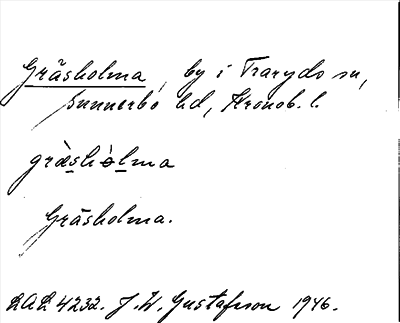 Gräsholma, by i Traryds sn,
Sunnerbo hd, Kronob. l.
græ̀shòlma
Gräsholma.
LAL 4232. J. W. Gustafsson 1946.